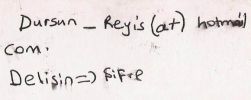 Dursun _ Reyis (at) hotmail
com.
Delisin => şifre